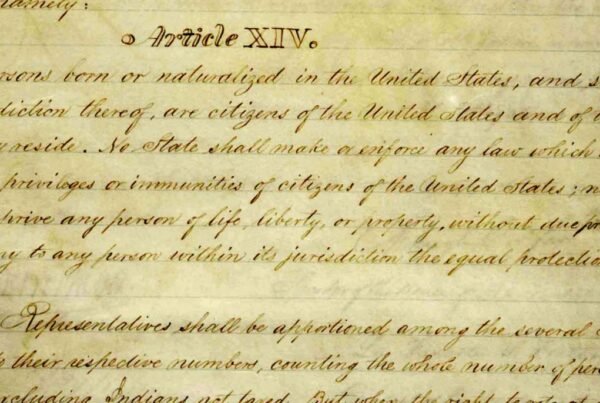 namely:
Article XIV.
rsons born or naturalized in the United States, and s
diction thereof, are citizens of the United States and of
y reside. No State shall make or enforce any law which
privileges or immunities of citizens of the United States; n
prive any person of life, liberty, or property, without due pro
ny to any person within its jurisdiction the equal protectio
Representatives shall be apportioned among the several
their respective numbers, counting the whole number of per
xcluding Indians not taxed. But when the right to vote at